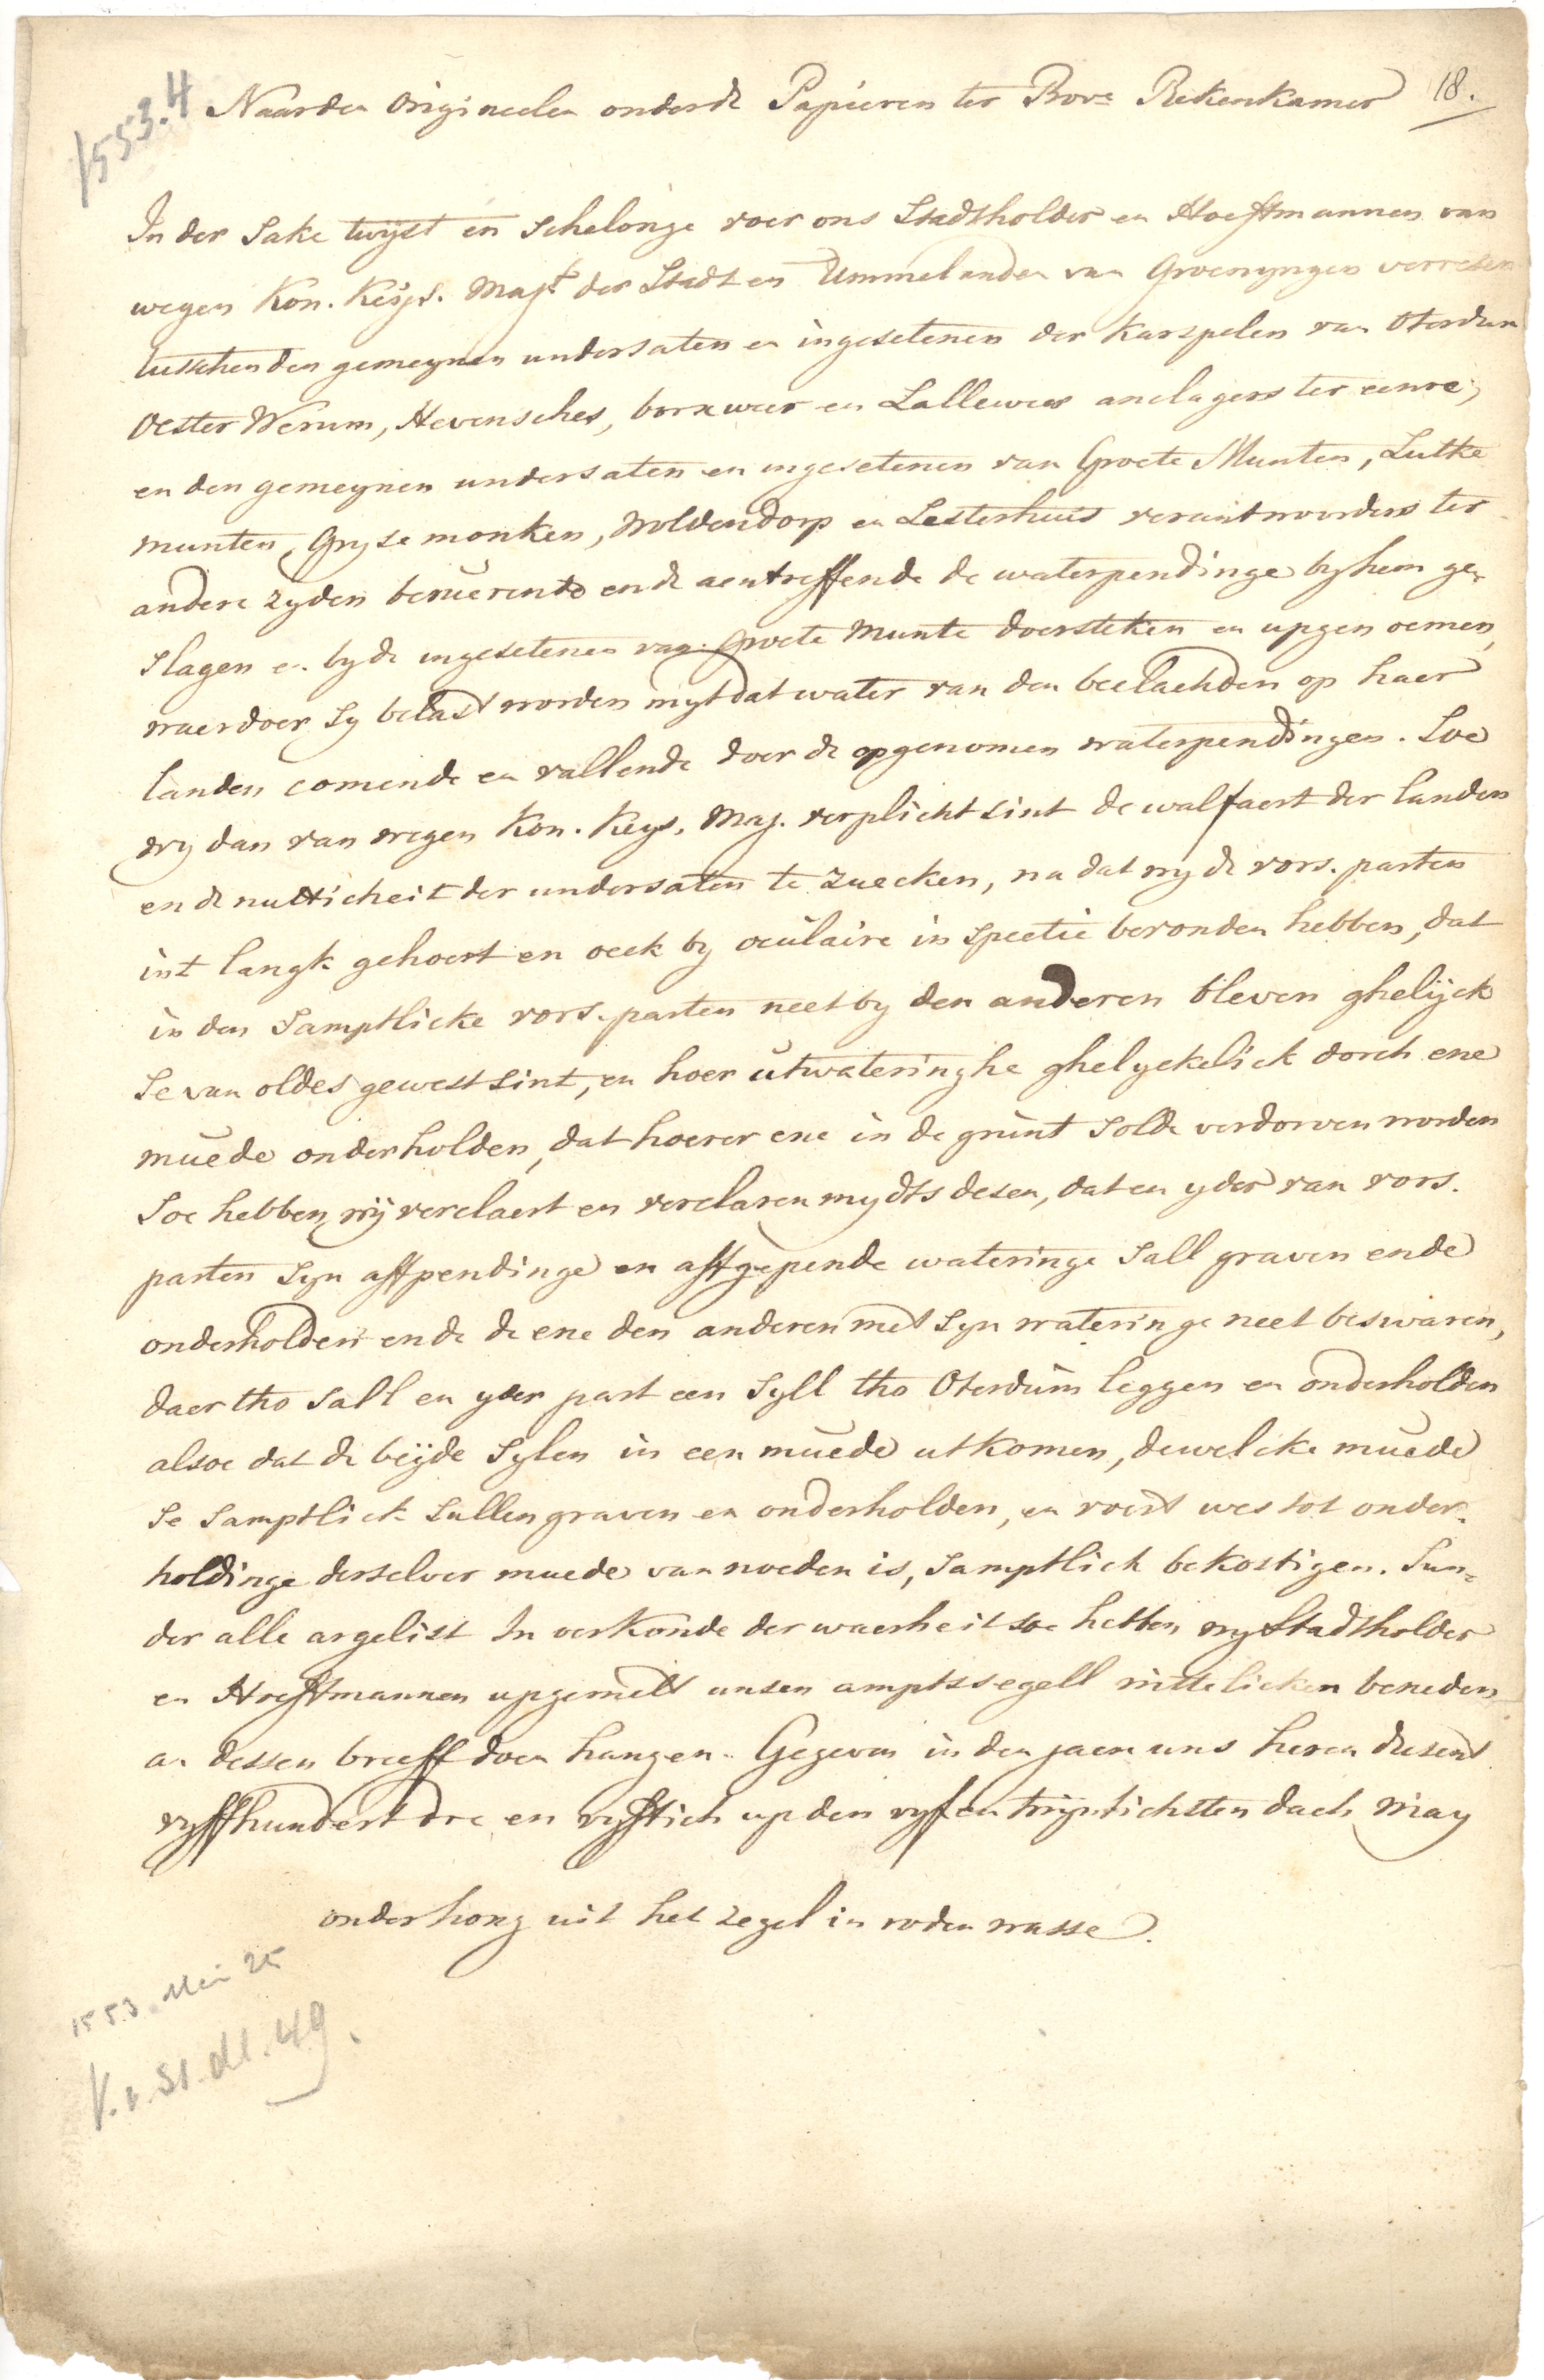 1553.4
Naarden Origineelen onderde Papieren ter Prove Rekenkamer 18.
In der Sake twijst en schelonge voer ons Stadtholder en Hoeffmannen van
wegen Kon. Keijs. Majt der Stadt en Ummelanden van Groenyngen verresen
tusschen den gemeynen undersaten en ingesetenen der Karspelen van Oterdum
Oester Werum, Hevensches, borxweer en Lalleweer anclagers ter eenre,
en den gemeynen undersaten en ingesetenen van Groete Munten, Lutke
munten, Gryse monken, Woldendorp en Lesterhuis verantwoorders ter
andere zyden beruerende ende aentreffende de waterpendinge by hem ge-
slagen en by de ingesetenen van Groete Munte doersteken en upgenoemen,
waerdoer sy belast worden mytdat water van den beelaehden op haer
landen comende en vallende doer de opgenomen waterpendingen. Soe
wy dan van wegen Kon. Keys. Maj. verplicht sint de walfaert der landen
ende nutticheit der undersaten te zuecken, na dat wy de vors. parten
int langk gehoert en oeck by oculaire inspectie bevonden hebben, dat
in den Samptlicke vors. parten neet by den anderen bleven ghelijck
se van oldes gewest sint, en hoer utwateringhe ghelyckelick dorch ene
muede onderholden, dat hoerer ene in de grunt solde verdorven worden
Soe hebben wij verclaert en verclaren mydts desen, dat en yder van vors.
parten Syn affpendinge en affgepende wateringe Sall graven ende
onderholden ende de ene den anderen met Syn wateringe neet beswaren,
daer tho Sall en yder part een Syll tho Oterdum leggen en onderholden
alsoe dat de beijde Sylen in een muede utkomen, dewelcke muede
Se Samptlick Sullen graven en onderholden, en voert wes tot onder-
holdinge derselver muede van noeden is, Samptlich bekostigen. Sun-
der alle argelist In oerkonde der waerheit soe hebben wy Stadtholder
en Hoeffmannen upgemelt unsen amptssegell wittelicken beneden
an dessen breeff doen hangen. Gegeven in den jaere uns heren dusent
vyffhundert dre en vyfftich up den vyfentwyntichsten dach May
onderhong uit het zegel in roden wasse.
1553. Mei 25
V. v. St. dl. 49.